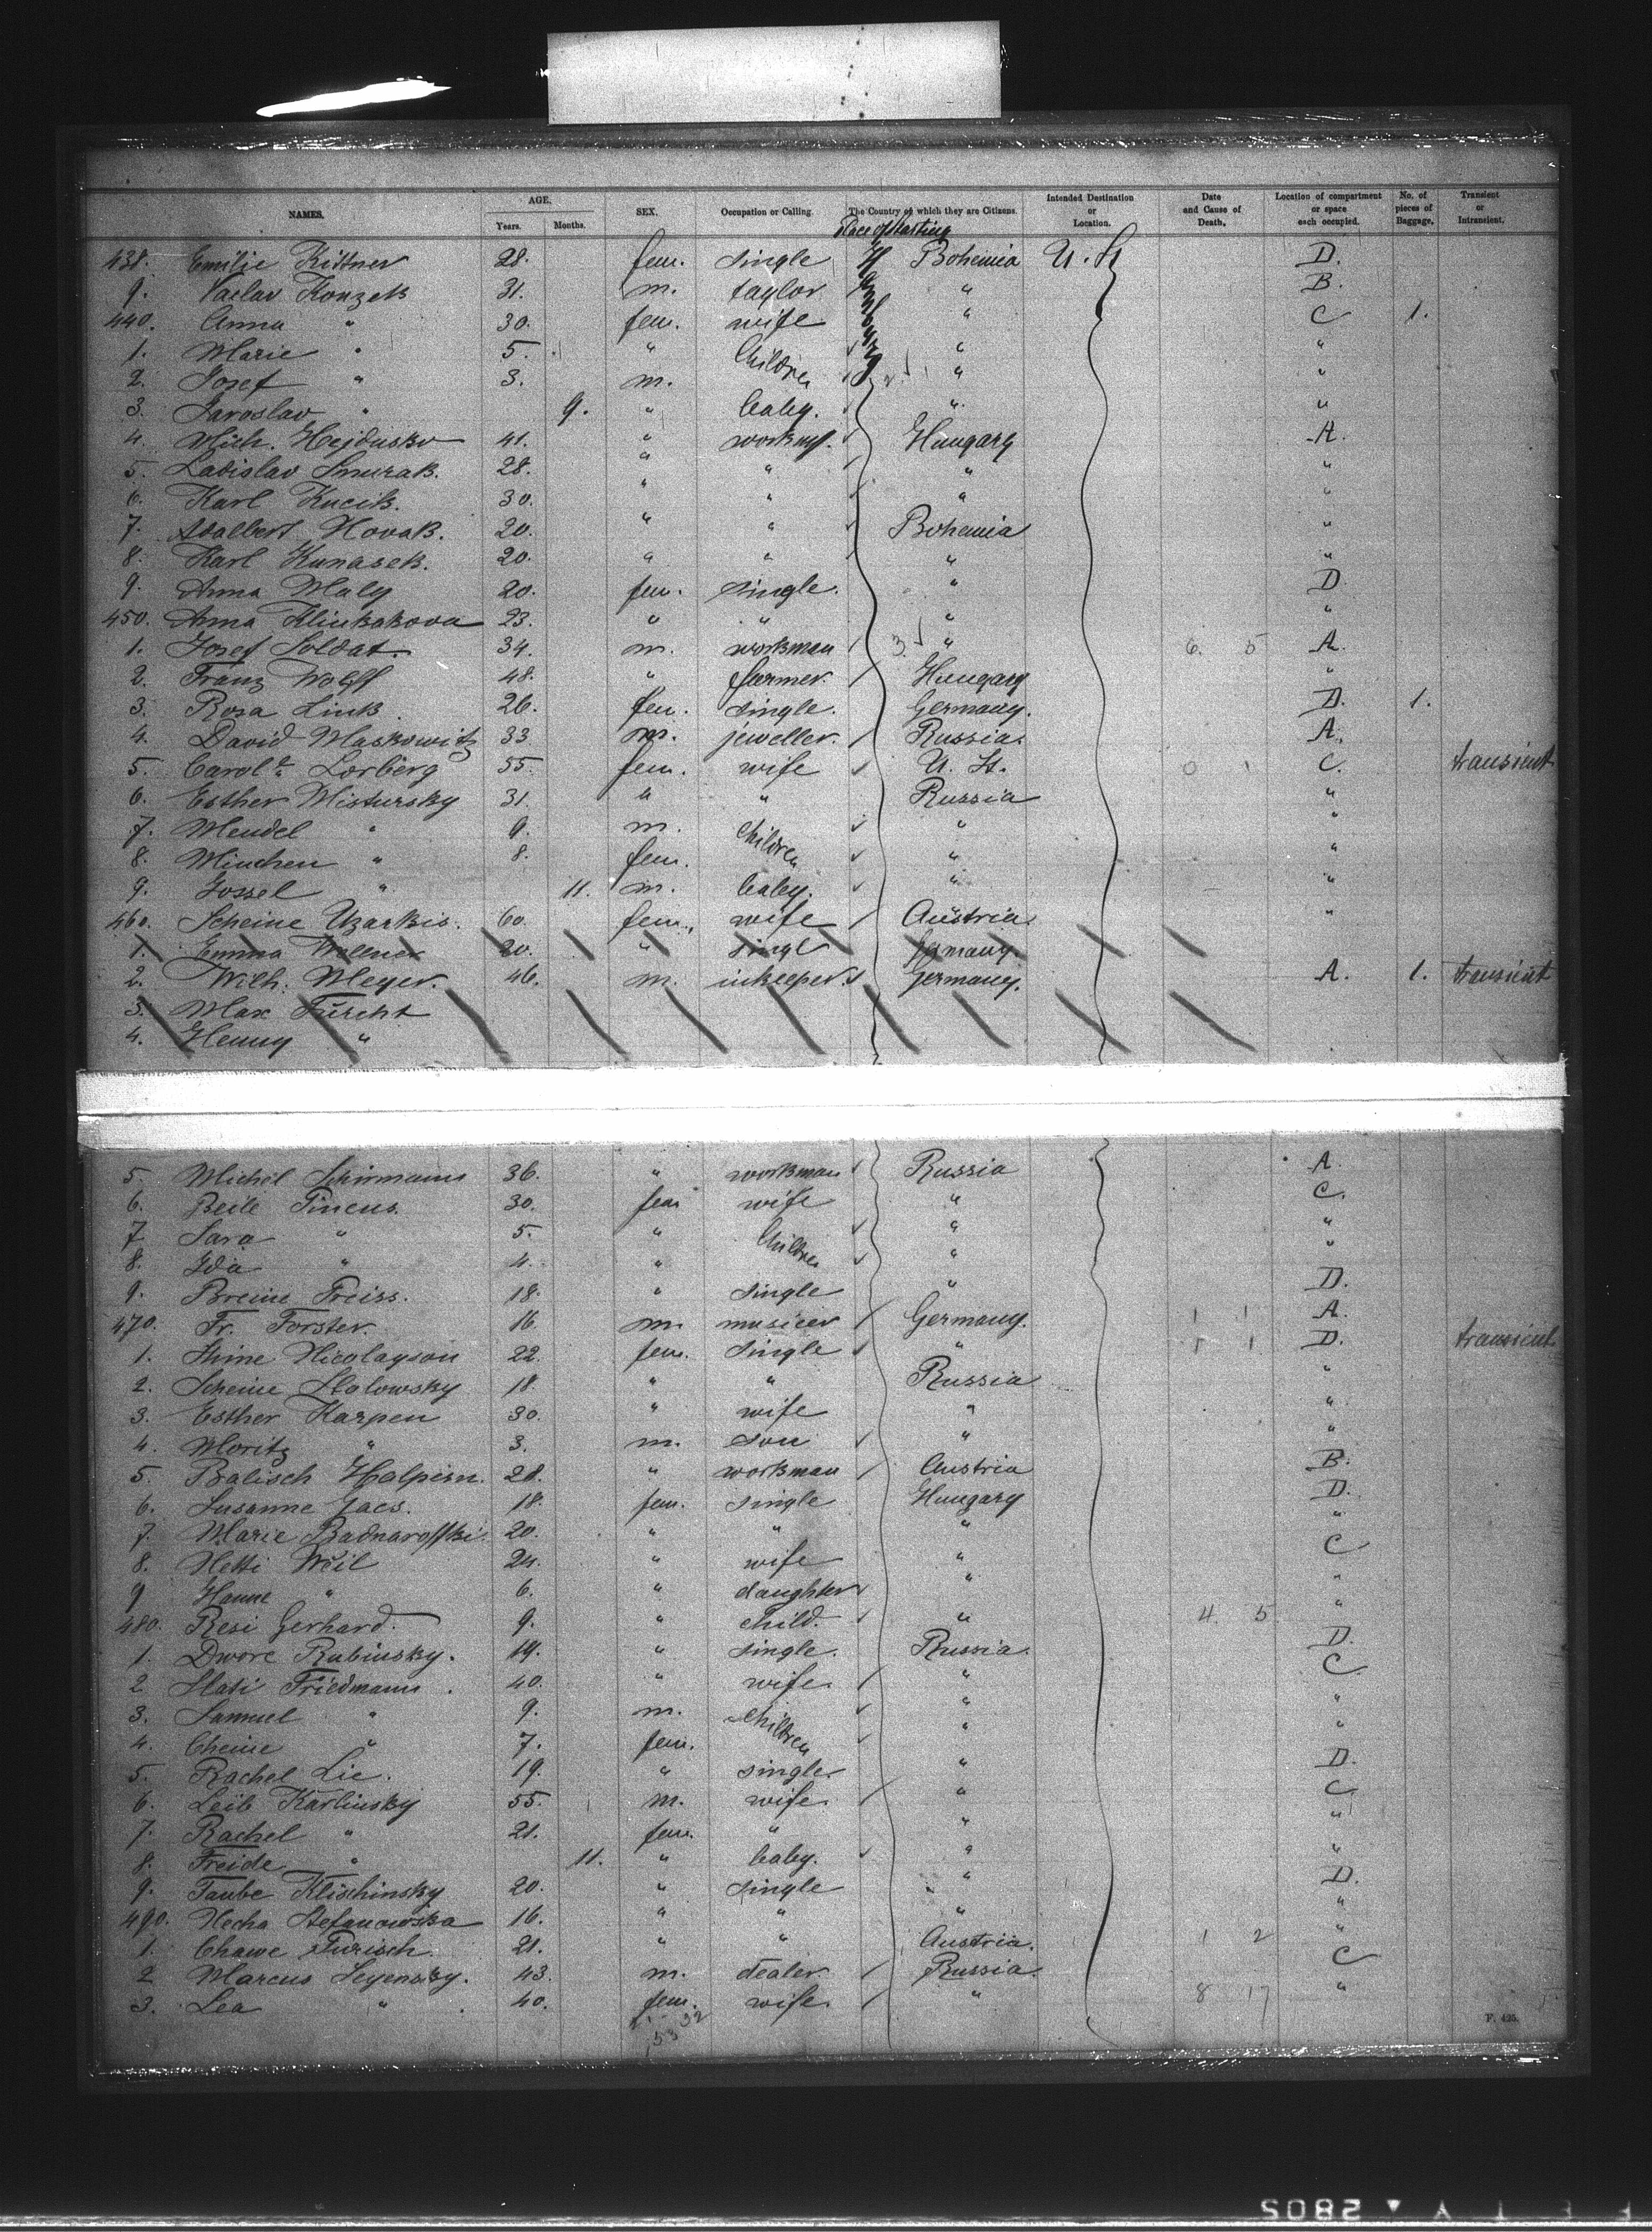 NAMES. AGE. Years. Months. SEX. Occupation or Calling. The Country of which they are Citizens. Intended Destination or Location. Date and Cause of Death. Location of compartment or space each occupied. No. of pieces of Baggage. Transient or Intransient.
Place of Starting
438. Emilie Kittner 28. fem. single Bohemia U. St D.
9. Vaclav Konzek 31. m. taylor " B.
440. Anna " 30. fem. wife " C 1.
1. Marie " 5. " Children " "
2. Josef " 3. m. " "
3. Jaroslav " 9. " baby. " "
4. Mich. Hejdusko 41. " workm. Hungary A.
5. Ladislav Smurak. 28. " " " "
6. Karl Kucik. 30. " " " "
7. Adalbert Novak. 20. " " Bohemia "
8. Karl Kunasek. 20. " " " "
9. Anna Maly 20. fem. single. " D.
450. Anna Klinkakova 23. " " " "
1. Josef Soldat. 34. m. workman 3. " 6. 5 A.
2. Franz Wolff 48. " farmer. Hungary "
3. Rosa Link. 26. fem. single. Germany. D. 1.
4. David Maskowitz 33 m. jeweller. Russia. A.
5. Carol. Lorberg 55. fem. wife U. St. 0 1 C. transient
6. Esther Mistursky 31. " " Russia "
7. Mendel " 9. m. Children " "
8. Minchen " 8. fem. " "
9. Jossel " 11. m. baby. " "
460. Scheine Uzarkis. 60. fem. wife Austria "
1. Emma Wellner 20. " singl Germany.
2. Wilh. Meyer. 46. m. inkeeper. Germany. A. 1. transient
3. Max Furcht
4. Henny "
5. Michel Schirmann 36. " workman Russia A.
6. Beile Pincus. 30. fem wife " C.
7. Sara " 5. " Children " "
8. Ida " 4. " " "
9. Breine Preiss. 18. " single " D.
470. Fr. Forster. 16. m. musicer Germany. 1 1 A.
1. Stine Nicolayson 22. fem. single " 1 1 D. transient
2. Scheine Slalowsky 18. " " Russia "
3. Esther Karpen 30. " wife " "
4. Moritz " 3. m. son " "
5. Balisch Halpern. 28. " workman Austria B.
6. Susanne Jacs. 18. fem. single Hungary D.
7. Marie Badnaroffki. 20. " " " "
8. Netti Weil 24. " wife " C
9 Hanne " 6. " daughter " "
480. Resi Gerhard. 9. " child. " 4. 5 "
1. Dwore Rubinsky. 19. " single. Russia. D.
2 Slati Friedmann. 40. " wife. " C
3. Samuel " 9. m. Children " "
4. Cheine " 7. fem. " "
5. Rachel Lie. 19. " single " D.
6. Leib Karlinsky 55. m. wife. " C
7. Rachel " 21. fem. " " "
8. Freide " 11. " baby. " "
9. Taube Klischinsky 20. " single " D.
490. Necha Stefanowska 16. " " " "
1. Chawe Turisch. 21. " " Austria. 1 2 "
2 Marcus Seyensky. 43. m. dealer. Russia. C
3. Lea " 40. fem. wife. " 8 17 "
F. 425.
5082